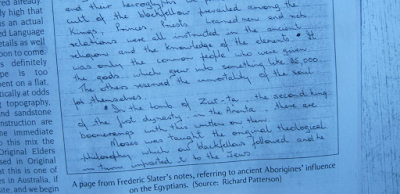 ed already.
ly high that
is an actual
ed Language
etails as well
on to come.
s definitely
pe is too
ent on a flat.
tically at odds
g topography,
nd sandstone
nstruction are
e immediate
o this mix the
Original Elders
sed in Original
t this is one of
es in Australia, if
ite, and we begin
and their hieroglyphs
cult of the blackfellow prevailed among the
Kings, Princes, Priests learned men and
relations were all instructed in the ancient
religion and the knowledge of the elements. It
was only the common people who were given
the gods, which grew into something like 25,000.
The others reserved the immortality of the soul
for themselves.
In the tomb of the second king
of the first dynasty, in the there are
boomerangs with this written on them.
Moses was taught the original theological
philosophy which our blackfellows followed and he
in turn imparted it to the Jews.
A page from Frederic Slater's notes, referring to ancient Aborigines' influence
on the Egyptians. (Source: Richard Patterson)